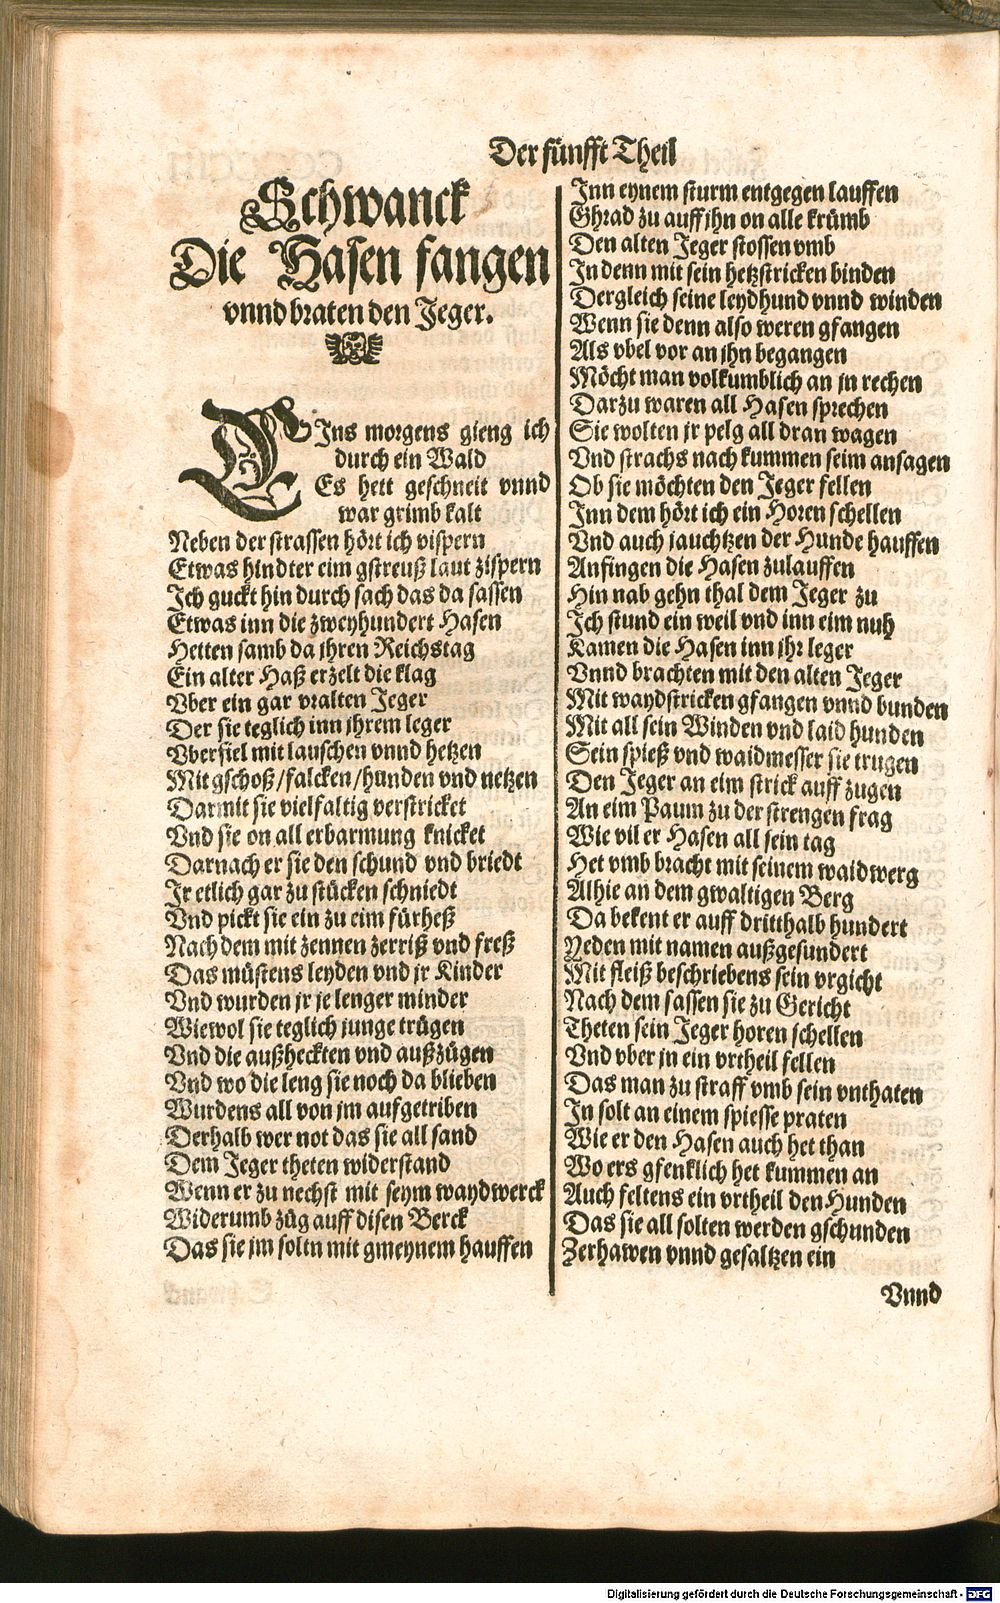 Der fünfft Theil
Schwanck
Die Hasen fangen
vnnd braten den Jeger.
EIns morgens gieng ich
durch ein Wald
Es hett geschneit vnnd
war grimb kalt
Neben der strassen hört ich vispern
Etwas hindter eim gstreuß laut zispern
Ich guckt hin durch sach das da sassen
Etwas inn die zweyhundert Hasen
Hetten samb da jhren Reichstag
Ein alter Haß erzelt die klag
Vber ein gar vralten Jeger
Der sie teglich inn jhrem leger
Vberfiel mit lauschen vnnd hetzen
Mit gschoß/falcken/hunden vnd netzen
Darmit sie vielfaltig verstricket
Vnd sie on all erbarmung knicket
Darnach er sie den schund vnd briedt
Ir etlich gar zu stücken schniedt
Vnd pickt sie ein zu eim fürheß
Nach dem mit zennen zerriß vnd freß
Das müstens leyden vnd jr Kinder
Vnd wurden jr je lenger minder
Wiewol sie teglich junge trügen
Vnd die außheckten vnd außzügen
Vnd wo die leng sie noch da blieben
Wurdens all von jm aufgetriben
Derhalb wer not das sie all sand
Dem Jeger theten widerstand
Wenn er zu nechst mit seym waydwerck
Widerumb züg auff disen Berck
Das sie jm soltn mit gmeynem hauffen
Inn eynem sturm entgegen lauffen
Ghrad zu auff jhn on alle krümb
Den alten Jeger stossen vmb
In denn mit sein hetzstricken binden
Dergleich seine leydhund vnnd winden
Wenn sie denn also weren gfangen
Als vbel vor an jhn begangen
Möcht man volkumblich an jn rechen
Darzu waren all Hasen sprechen
Sie wolten jr pelg all dran wagen
Vnd strachs nach kummen seim ansagen
Ob sie möchten den Jeger fellen
Inn dem hört ich ein Horen schellen
Vnd auch jauchtzen der Hunde hauffen
Anfingen die Hasen zulauffen
Hin nab gehn thal dem Jeger zu
Ich stund ein weil vnd inn eim nuh
Kamen die Hasen inn jhr leger
Vnnd brachten mit den alten Jeger
Mit waydstricken gfangen vnnd bunden
Mit all sein Winden vnd laid hunden
Sein spieß vnd waidmesser sie trugen
Den Jeger an eim strick auff zugen
An eim Paum zu der strengen frag
Wie vil er Hasen all sein tag
Het vmb bracht mit seinem waidwerg
Alhie an dem gwaltigen Berg
Da bekent er auff dritthalb hundert
Yeden mit namen außgesundert
Mit fleiß beschriebens sein vrgicht
Nach dem sassen sie zu Gericht
Theten sein Jeger horen schellen
Vnd vber jn ein vrtheil fellen
Das man zu straff vmb sein vnthaten
In solt an einem spiesse praten
Wie er den Hasen auch het than
Wo ers gfenklich het kummen an
Auch feltens ein vrtheil den Hunden
Das sie all solten werden gschunden
Zerhawen vnnd gesaltzen ein
Vnnd
Digitalisierung gefördert durch die Deutsche Forschungsgemeinschaft - DFG